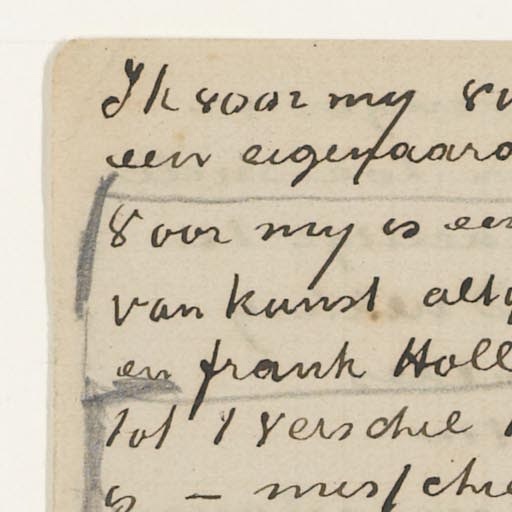 Ik voor my
een eigenaard
voor my is een
van kunst alty
en frank Holl
tot 't verschil
– misschie